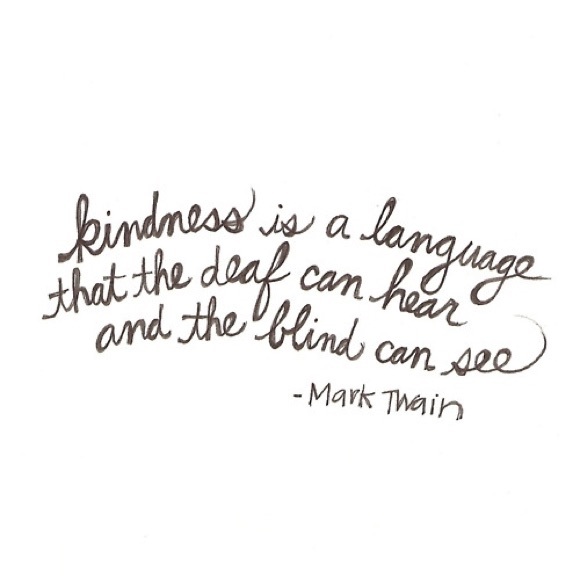 kindness is a language
that the deaf can hear
and the blind can see
-Mark Twain